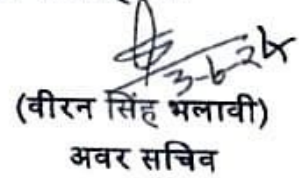 3-6-24
(वीरन सिंह भलावी)
अवर सचिव